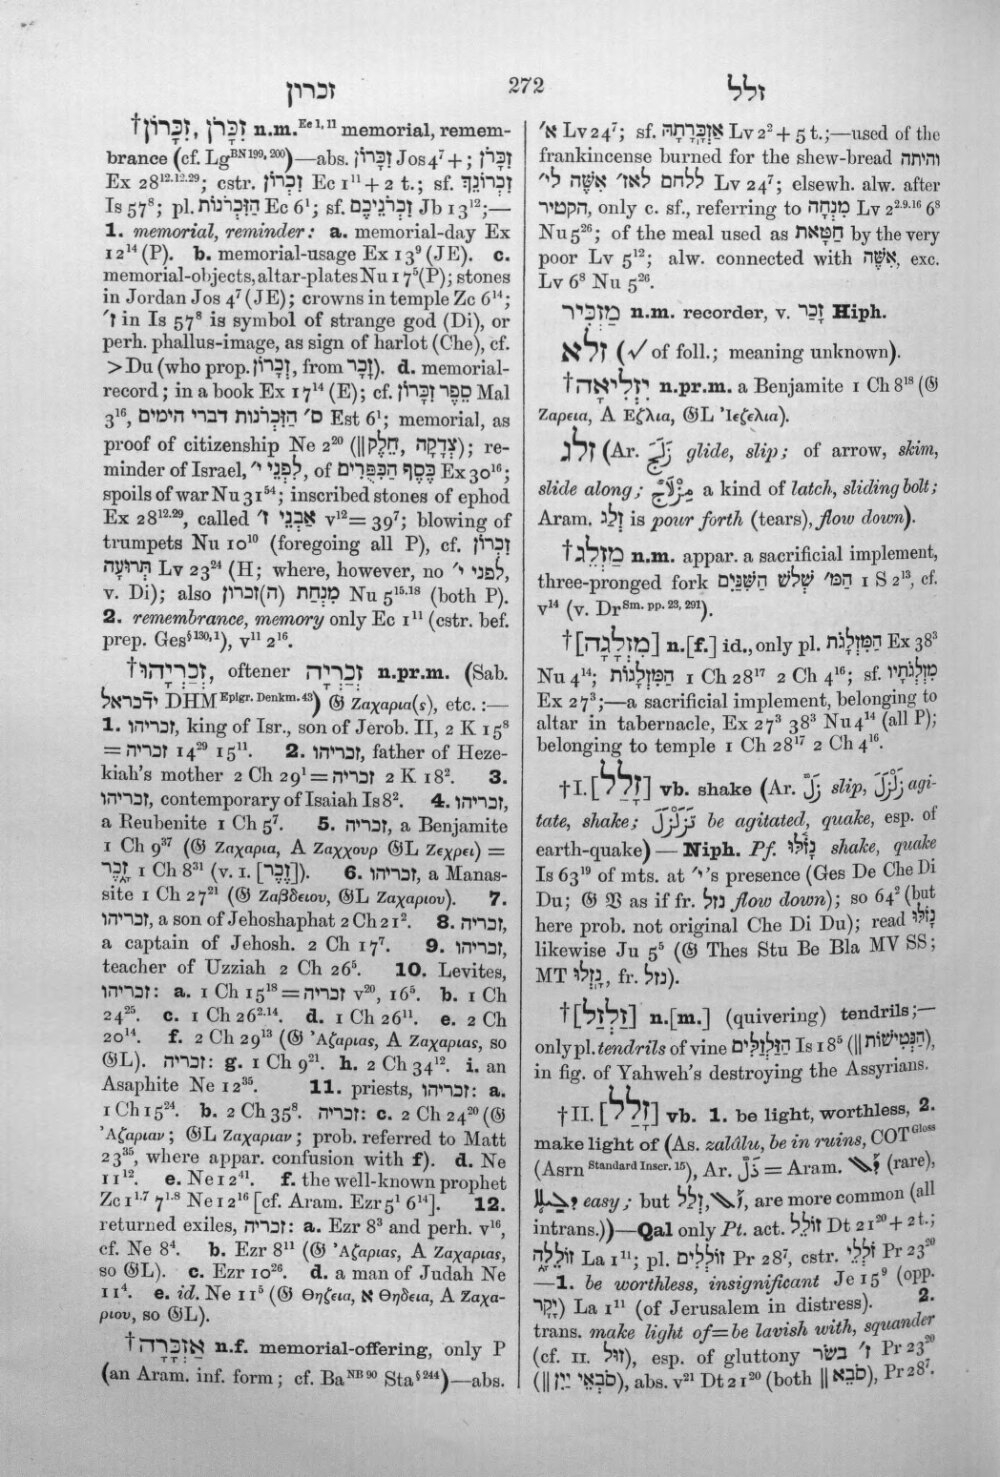 זכרון
272
זלל
†זִכָּרוֹן, זִכָּרֹן n.m. Ec 1, 11 memorial, remem-
brance (cf. Lg BN 199, 200)—abs. זִכָּרוֹן Jos 4⁷ +; זִכָּרֹן
Ex 28¹²·¹²·²⁹; cstr. זִכְרוֹן Ec 1¹¹ + 2 t.; sf. זִכְרוֹנֵךְ
Is 57⁸; pl. הַזִּכְרֹנוֹת Ec 6¹; sf. זִכְרֹנֵיכֶם Jb 13¹²;—
1. memorial, reminder: a. memorial-day Ex
12¹⁴ (P). b. memorial-usage Ex 13⁹ (JE). c.
memorial-objects, altar-plates Nu 17⁵ (P); stones
in Jordan Jos 4⁷ (JE); crowns in temple Zc 6¹⁴;
ז׳ in Is 57⁸ is symbol of strange god (Di), or
perh. phallus-image, as sign of harlot (Che), cf.
>Du (who prop. זִכָּרוֹן, from זָכָר). d. memorial-
record; in a book Ex 17¹⁴ (E); cf. סֵפֶר זִכָּרוֹן Mal
3¹⁶, ס׳ הַזִּכְרֹנוֹת דברי הימים Est 6¹; memorial, as
proof of citizenship Ne 2²⁰ (‖ צְדָקָה, חֵלֶק); re-
minder of Israel, לִפְנֵי י׳, of כֶּסֶף הַכִּפֻּרִים Ex 30¹⁶;
spoils of war Nu 31⁵⁴; inscribed stones of ephod
Ex 28¹²·²⁹, called אַבְנֵי ז׳ v¹² = 39⁷; blowing of
trumpets Nu 10¹⁰ (foregoing all P), cf. זִכְרוֹן
תְּרוּעָה Lv 23²⁴ (H; where, however, no לפני י׳,
v. Di); also מִנְחַת (ה)זכרון Nu 5¹⁵·¹⁸ (both P).
2. remembrance, memory only Ec 1¹¹ (cstr. bef.
prep. Ges§ 130, 1), v¹¹ 2¹⁶.
†זְכַרְיָהוּ, oftener זְכַרְיָה n.pr.m. (Sab.
ידׄכראל DHM Epigr. Denkm. 43) 𝔊 Ζαχαρια(ς), etc.:—
1. זכריהו, king of Isr., son of Jerob. II, 2 K 15⁸
= זכריה 14²⁹ 15¹¹. 2. זכריהו, father of Heze-
kiah's mother 2 Ch 29¹ = זכריה 2 K 18². 3.
זכריהו, contemporary of Isaiah Is 8². 4. זכריהו,
a Reubenite 1 Ch 5⁷. 5. זכריה, a Benjamite
1 Ch 9³⁷ (𝔊 Ζαχαρια, A Ζαχχουρ 𝔊L Ζεχρει) =
זֶכֶר 1 Ch 8³¹ (v. I. [זֶכֶר]). 6. זכריהו, a Manas-
site 1 Ch 27²¹ (𝔊 Ζαβδειου, 𝔊L Ζαχαριου). 7.
זכריהו, a son of Jehoshaphat 2 Ch 21². 8. זכריה,
a captain of Jehosh. 2 Ch 17⁷. 9. זכריהו,
teacher of Uzziah 2 Ch 26⁵. 10. Levites,
זכריהו: a. 1 Ch 15¹⁸ = זכריה v²⁰, 16⁵. b. 1 Ch
24²⁵. c. 1 Ch 26²·¹⁴. d. 1 Ch 26¹¹. e. 2 Ch
20¹⁴. f. 2 Ch 29¹³ (𝔊 Ἀζαριας, A Ζαχαριας, so
𝔊L). זכריה: g. 1 Ch 9²¹. h. 2 Ch 34¹². i. an
Asaphite Ne 12³⁵. 11. priests, זכריהו: a.
1 Ch 15²⁴. b. 2 Ch 35⁸. זכריה: c. 2 Ch 24²⁰ (𝔊
Ἀζαριαν; 𝔊L Ζαχαριαν; prob. referred to Matt
23³⁵, where appar. confusion with f). d. Ne
11¹². e. Ne 12⁴¹. f. the well-known prophet
Zc 1¹·⁷ 7¹·⁸ Ne 12¹⁶ [cf. Aram. Ezr 5¹ 6¹⁴]. 12.
returned exiles, זכריה: a. Ezr 8³ and perh. v¹⁶,
cf. Ne 8⁴. b. Ezr 8¹¹ (𝔊 Ἀζαριας, A Ζαχαριας,
so 𝔊L). c. Ezr 10²⁶. d. a man of Judah Ne
11⁴. e. id. Ne 11⁵ (𝔊 Θηζεια, א Θηδεια, A Ζαχα-
ριου, so 𝔊L).
†אַזְכָּרָה n.f. memorial-offering, only P
(an Aram. inf. form; cf. Ba NB 90 Sta § 244)—abs.
א׳ Lv 24⁷; sf. אַזְכָּרָתָהּ Lv 2² + 5 t.;—used of the
frankincense burned for the shew-bread והיתה
ללחם לאז׳ אִשֶּׁה לי׳ Lv 24⁷; elsewh. alw. after
הקטיר, only c. sf., referring to מִנְחָה Lv 2²·⁹·¹⁶ 6⁸
Nu 5²⁶; of the meal used as חַטָּאת by the very
poor Lv 5¹²; alw. connected with אִשֶּׁה, exc.
Lv 6⁸ Nu 5²⁶.
מַזְכִּיר n.m. recorder, v. זָכַר Hiph.
זלא (√ of foll.; meaning unknown).
†יִזְלִיאָה n.pr.m. a Benjamite 1 Ch 8¹⁸ (𝔊
Ζαρεια, A Εζλια, 𝔊L Ἰεζελια).
זלג (Ar. زَلَجَ glide, slip; of arrow, skim,
slide along; مِزْلَاجٌ a kind of latch, sliding bolt;
Aram. זְלַג is pour forth (tears), flow down).
†מַזְלֵג n.m. appar. a sacrificial implement,
three-pronged fork הַמּ׳ שְׁלֹשׁ הַשִּׁנַּיִם 1 S 2¹³, cf.
v¹⁴ (v. Dr Sm. pp. 23, 291).
†[מִזְלָגָה] n.[f.] id., only pl. הַמִּזְלָגֹת Ex 38³
Nu 4¹⁴; הַמִּזְלָגוֹת 1 Ch 28¹⁷ 2 Ch 4¹⁶; sf. מִזְלְגֹתָיו
Ex 27³;—a sacrificial implement, belonging to
altar in tabernacle, Ex 27³ 38³ Nu 4¹⁴ (all P);
belonging to temple 1 Ch 28¹⁷ 2 Ch 4¹⁶.
†I. [זָלַל] vb. shake (Ar. زَلَّ slip, زَلْزَلَ agi-
tate, shake; تَزَلْزَلَ be agitated, quake, esp. of
earth-quake) — Niph. Pf. נָזֹלּוּ shake, quake
Is 63¹⁹ of mts. at י׳'s presence (Ges De Che Di
Du; 𝔊 𝔙 as if fr. נזל flow down); so 64² (but
here prob. not original Che Di Du); read נָזֹלּוּ
likewise Ju 5⁵ (𝔊 Thes Stu Be Bla MV SS;
MT נָזְלוּ, fr. נזל).
†[זַלְזַל] n.[m.] (quivering) tendrils;—
only pl. tendrils of vine הַזַּלְזַלִּים Is 18⁵ (‖ הַנְּטִישׁוֹת),
in fig. of Yahweh's destroying the Assyrians.
†II. [זָלַל] vb. 1. be light, worthless, 2.
make light of (As. zalâlu, be in ruins, COT Gloss
(Asrn Standard Inscr. 15), Ar. ذَلَّ = Aram. (rare),
easy; but זְלַל, are more common (all
intrans.))—Qal only Pt. act. זוֹלֵל Dt 21²⁰ + 2 t.;
זוֹלֵלָה La 1¹¹; pl. זוֹלְלִים Pr 28⁷, cstr. זֹלֲלֵי Pr 23²⁰
—1. be worthless, insignificant Je 15⁹ (opp.
יָקָר) La 1¹¹ (of Jerusalem in distress). 2.
trans. make light of = be lavish with, squander
(cf. II. זול), esp. of gluttony ז׳ בשׂר Pr 23²⁰
(‖ סֹבְאֵי יַיִן), abs. v²¹ Dt 21²⁰ (both ‖ סֹבֵא), Pr 28⁷.